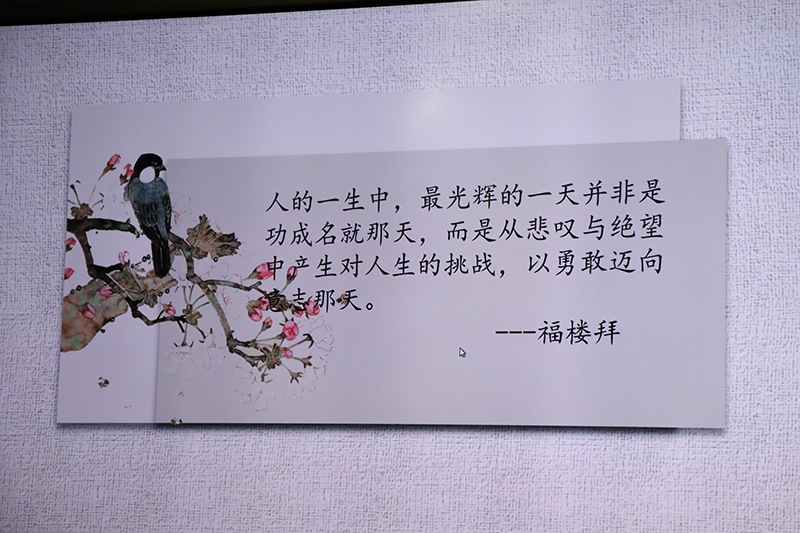 人的一生中，最光辉的一天并非是
功成名就那天，而是从悲叹与绝望
中产生对人生的挑战，以勇敢迈向
意志那天。
---福楼拜